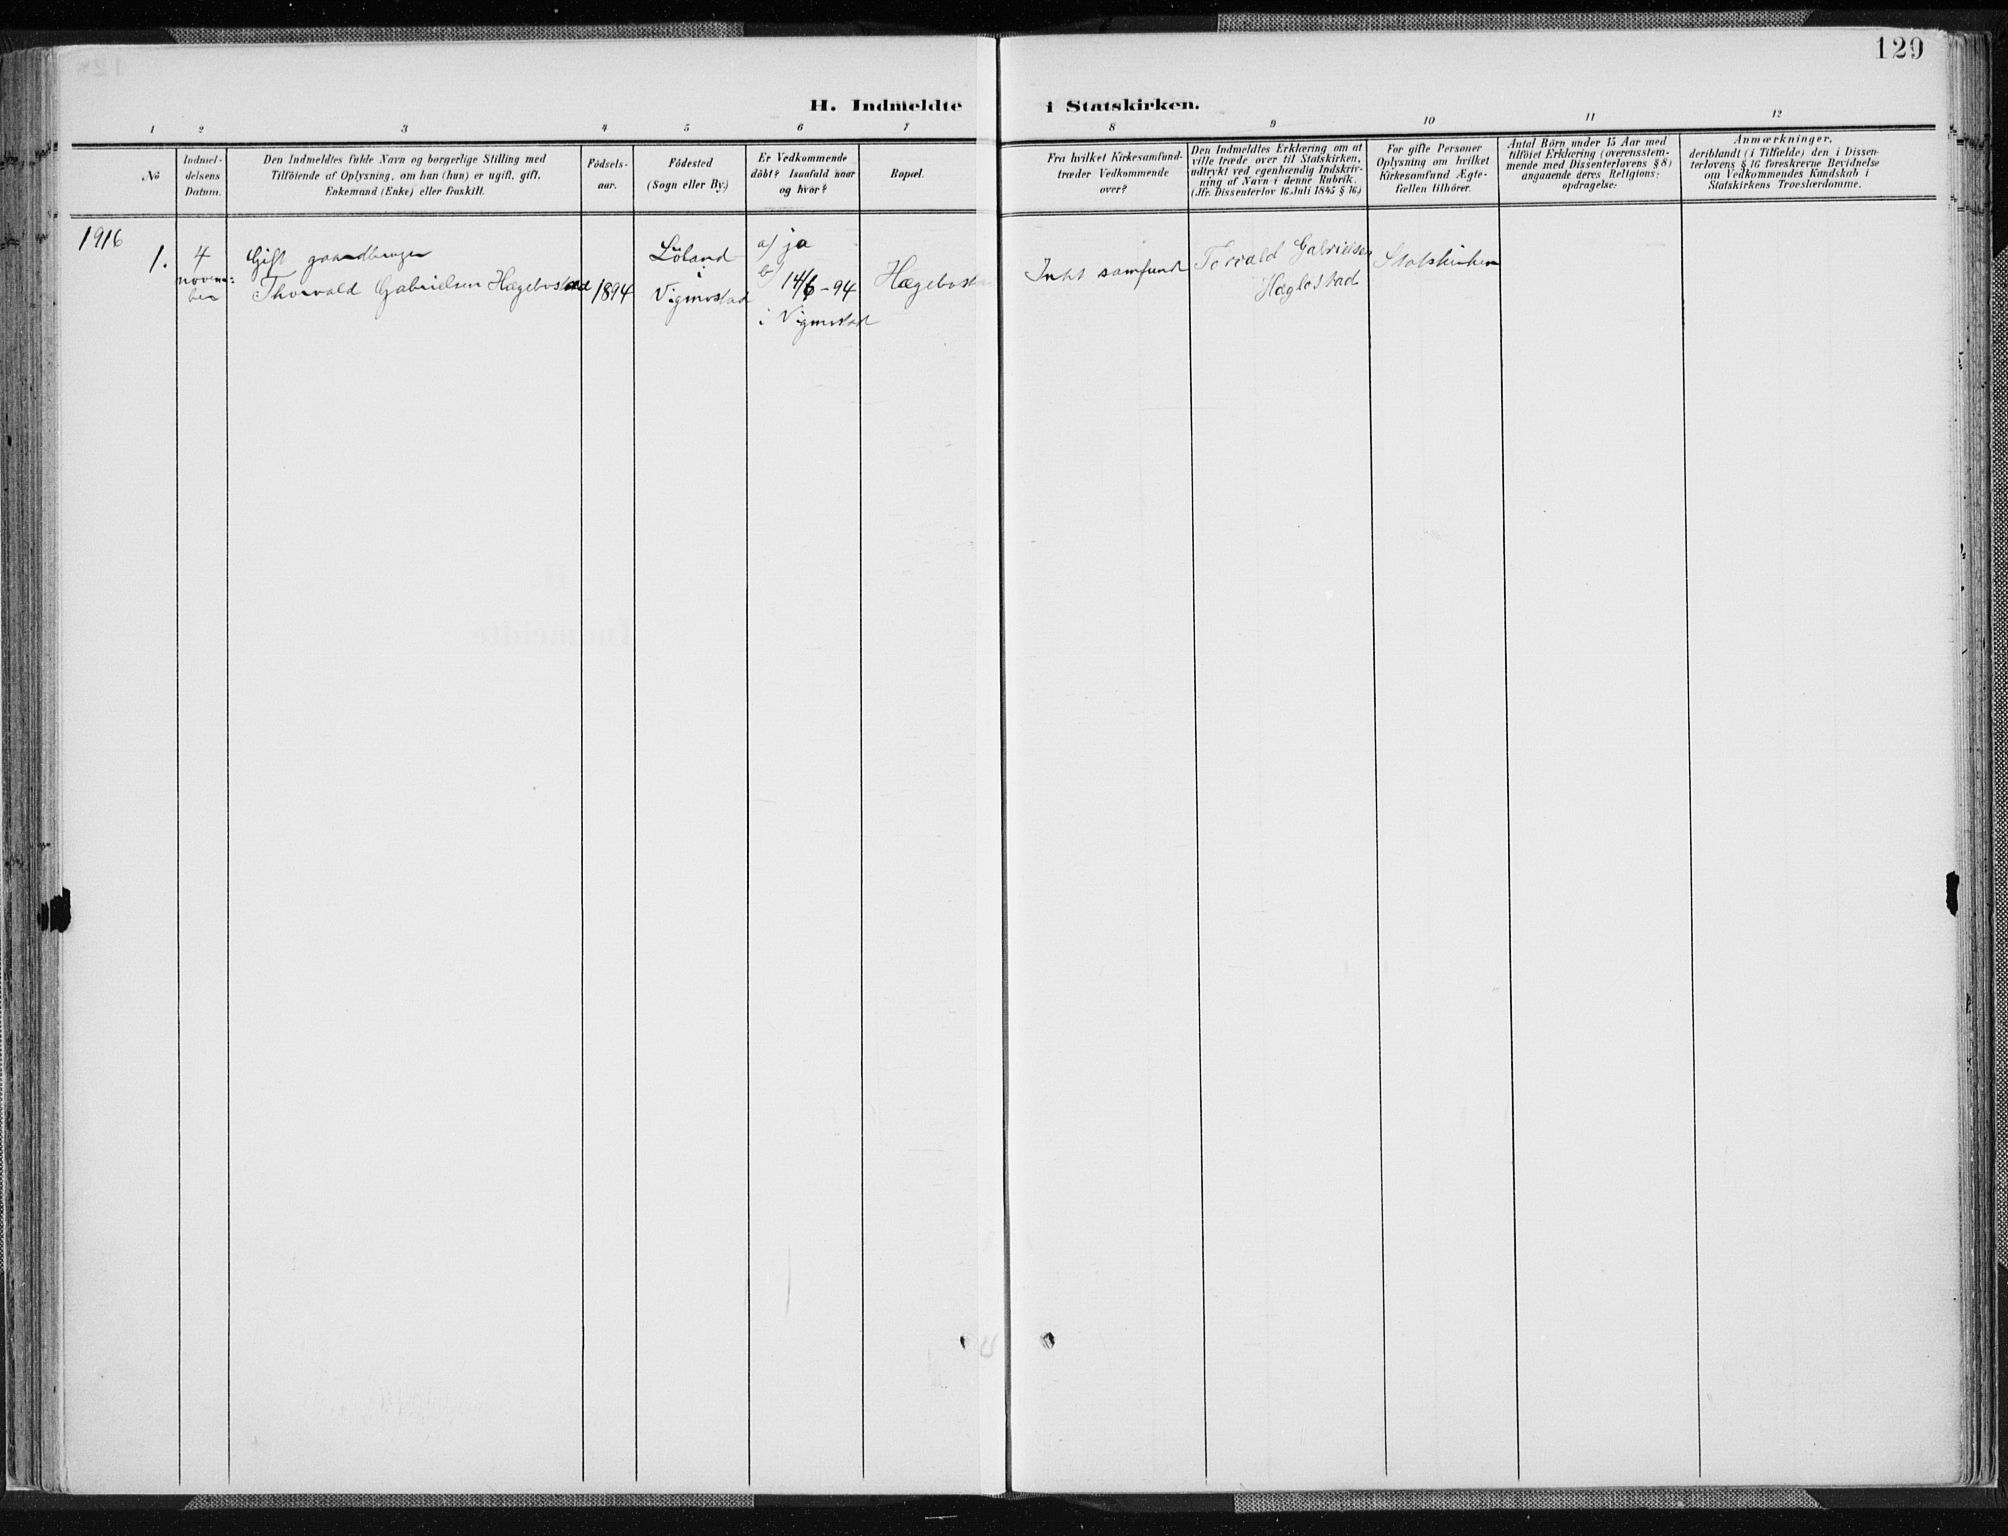 129
H. Indmeldte i Statskirken.
1 2 3 4 5 6 7 8 9 10 11 12
No
Indmel-
delsens
Datum.
Den Indmeldtes fulde Navn og borgerlige Stilling med
Tilföiende af Oplysning, om han (hun) er ugift, gift,
Enkemand (Enke) eller fraskilt.
Födsels-
aar.
Födested
(Sogn eller By.)
Er Vedkommende
döbt? Isaafald naar
og hvor?
Bopæl.
Fra hvilket Kirkesamfund
træder Vedkommende
over?
Den Indmeldtes Erklæring om at
ville træde over til Statskirken,
udtrykt ved egenhændig Indskriv-
ning af Navn i denne Rubrik.
(Jfr. Dissenterlov 16 Juli 1845 § 16.)
For gifte Personer
Oplysning om hvilket
Kirkesamfund Ægte-
fællen tilhörer.
Antal Börn under 15 Aar med
tilföiet Erklæring (overensstem-
mende med Dissenterlovens § 8)
angaaende deres Religions-
opdragelse:
Anmærkninger,
deriblandt (i Tilfælde) den i Dissen-
terlovens § 16 foreskrevne Bevidnelse
om Vedkommendes Kundskab i
Statskirkens Troeslærdomme.
1916
1.
4
novem-
ber
Gift gaardbruger
Thorvald Gabrielsen Hægebostad
1894
Löland
i
Vigmostad
a/ ja
b/ 14/6-94
i Vigmostad
Hægebostad
Intet samfund
Torvald Gabrielsen
Hæglestad
Statskirken